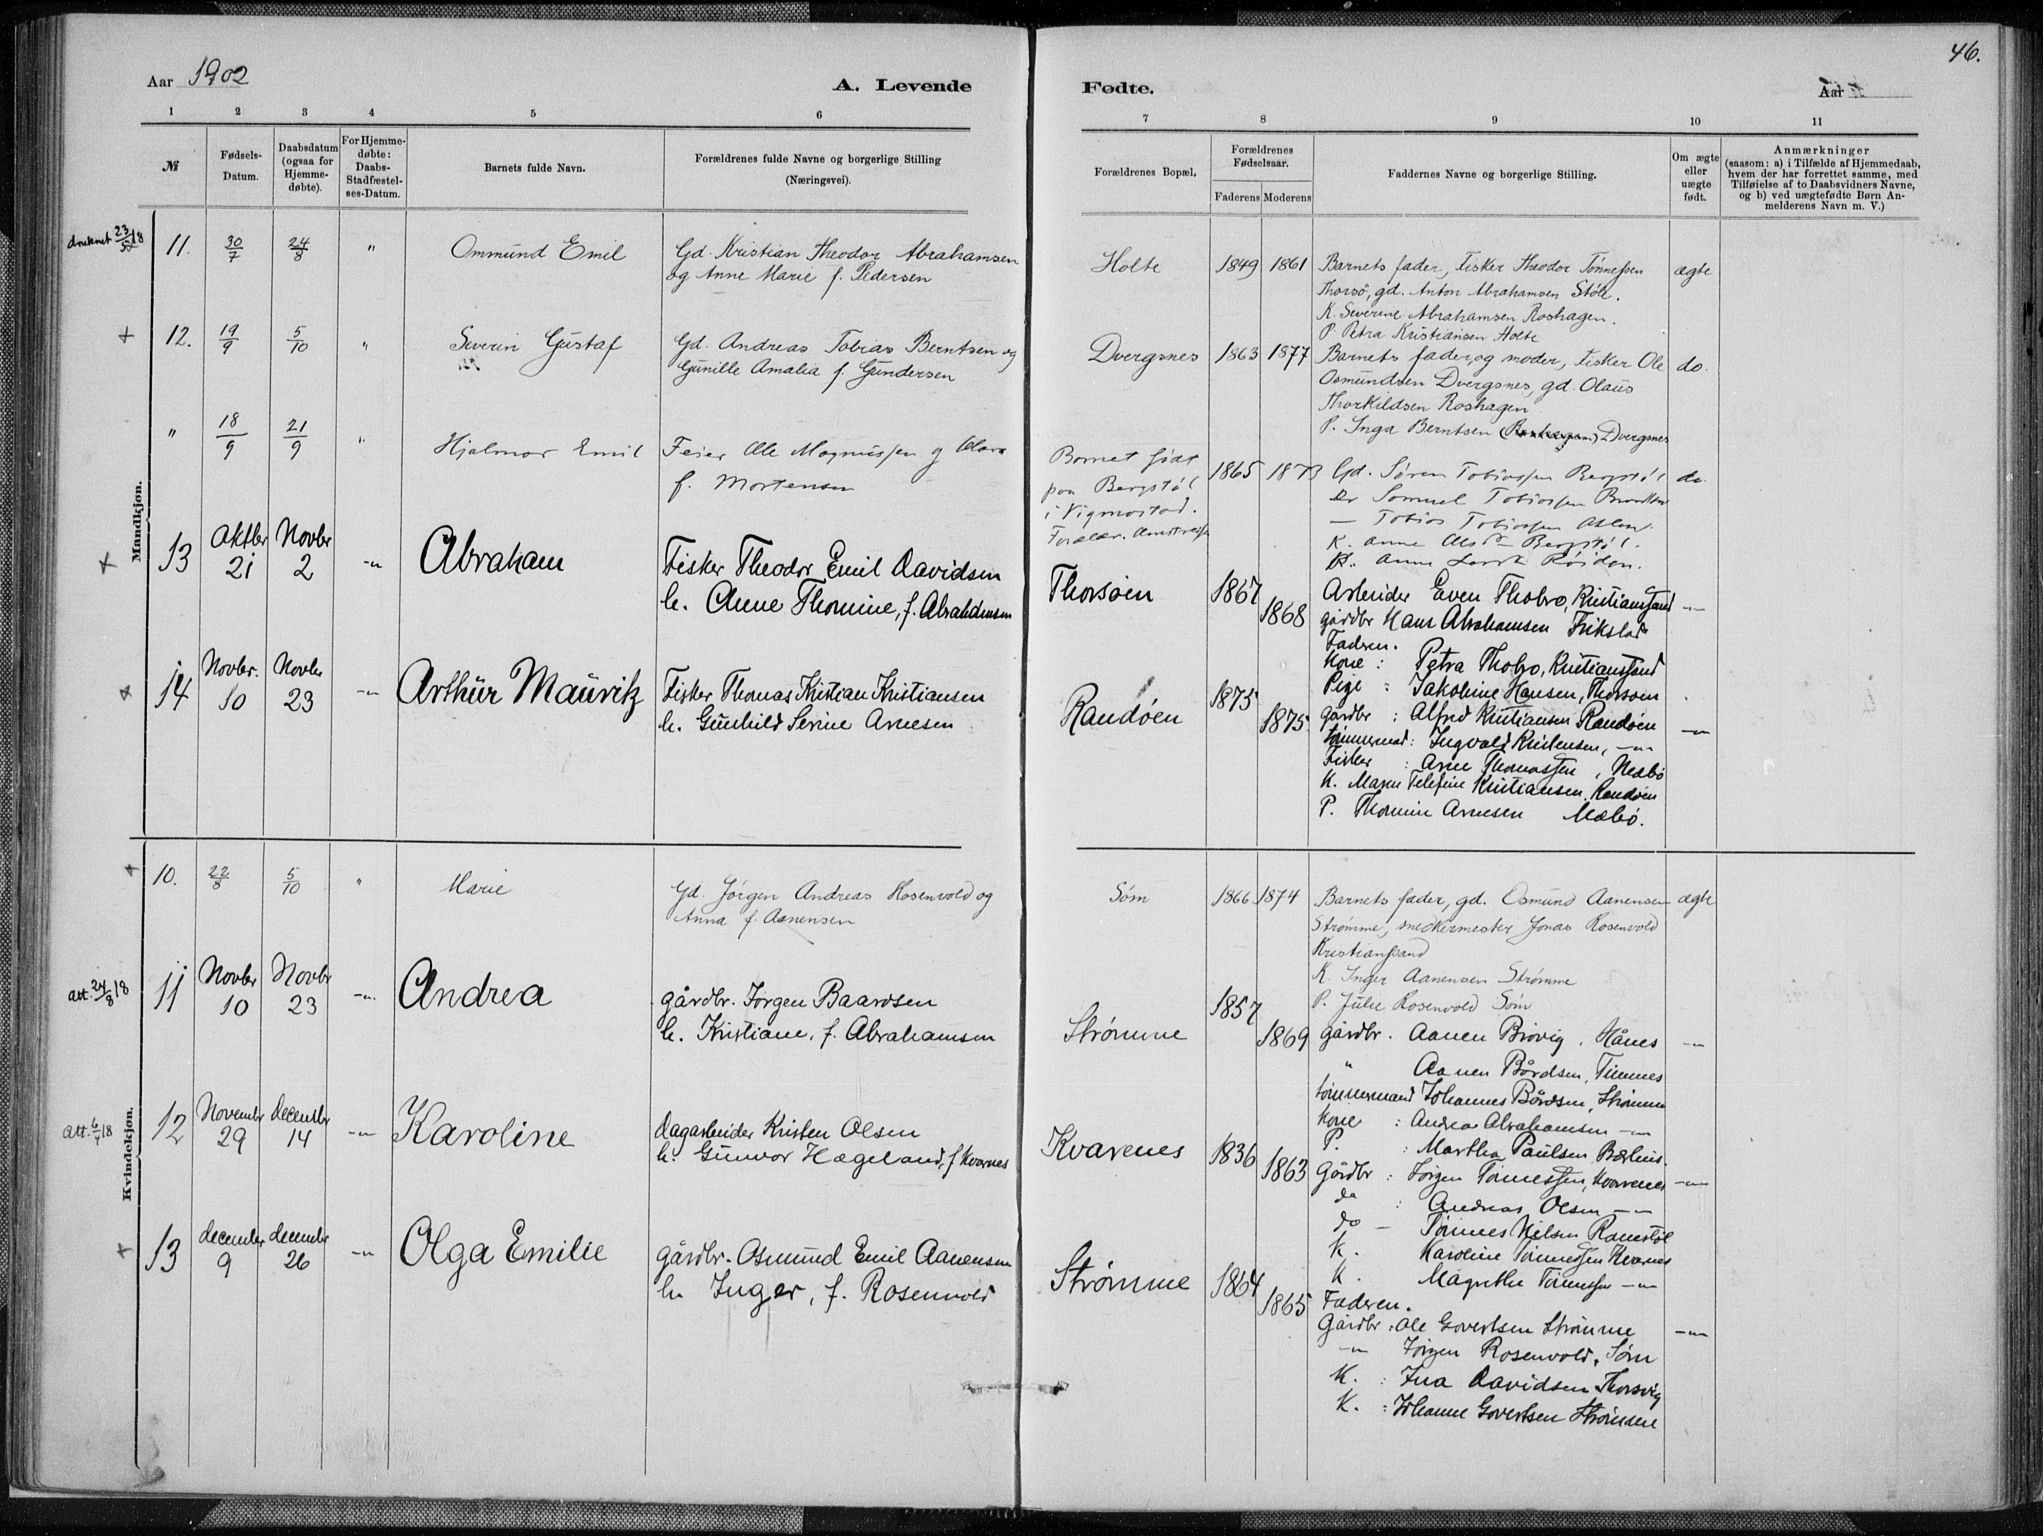 46.
Aar 1902
A. Levende
Fødte.
Aar
1 2 3 4 5 6 7 8 9 10 11
№
Fødsels-
Datum.
Daabsdatum
(ogsaa for
Hjemme-
døbte).
For Hjemme-
døbte:
Daabs-
Stadfæstel-
ses-Datum.
Barnets fulde Navn.
Forældrenes fulde Navne og borgerlige Stilling
(Næringsvei).
Forældrenes Bopæl,
Forældrenes
Fødselsaar.
Faderens Moderens
Faddernes Navne og borgerlige Stilling.
Om ægte
eller
uægte
født.
Anmærkninger
(saasom: a) i Tilfælde af Hjemmedaab,
hvem der har forrettet samme, med
Tilføielse af to Daabsvidners Navne,
og b) ved uægtefødte Børn An-
melderens Navn m. V.)
Mandkjøn.
11. 30/7 24/8 " Ommund Emil
Gd. Kristian Theodor Abrahamsen
og Anne Marie f. Pedersen
Holte 1849 1861
Barnets fader, Fisker Theodor Tønnessen
Thorsø, gd. Anton Abrahamsen Støle.
K. Severine Abrahamsen Roshagen.
P. Petra Kristiansen Holte
ægte
+ 12. 19/9 5/10 " Severin Gustaf
Gd. Andreas Tobias Berntsen og
Gunille Amalia f. Gundersen
Dvergsnes 1863 1877
Barnets fader og moder, Fisker Ole
Osmundsen Dvergsnes, gd. Olaus
Thorkildsen Roshagen
P. Inga Berntsen Dvergsnes
do.
" 18/9 21/9 " Hjalmar Emil
Feier Ole Magnussen og Clara
f. Mortensen
Barnet født
paa Bergstøl
i Vigmostad.
1865 1873
Gd. Søren Tobiassen Bergstøl
Samuel Tobiassen
— Tobias Tobiassen
K. Anne Bergstøl.
do.
x 13 Oktbr 21 Novbr 2 -"- Abraham
Fisker Theodor Emil Davidsen
h. Anne Thomine, f. Abrahamsen
Thorsøen 1867 1868
Arbeider Even Thobro, Kristianssand
gårdbr Hans Abrahamsen Frikstad
Faderen.
Kone : Petra Thobro, Kristianssand
Pige : Jakobine Hansen, Thorsøen
-"-
x 14 Novbr. 10 Novbr 23 -"- Arthur Mauritz
Fisker Thomas Kristian Kristiansen
h. Gunhild Serine Arnesen
Randøen 1875 1875
gårdbr : Alfred Kristiansen Randøen
tømmermd: Ingvald Kristensen, -"-
Fisker : Arne Thomassen, Mæbø
K. Maren Telefine Kristiansen, Randøen
P. Thomine Arnesen Mæbø.
-"-
Kvindekjøn.
+ 10. 22/8 5/10 " Marie
Gd. Jørgen Andreas Rosenvold og
Anna f. Aanensen
Søm 1866 1874
Barnets fader, gd. Osmund Aanensen
Strømme, snedkermester Jonas Rosenvold
Kristianssand
K. Inger Aanensen Strømme
P. Julie Rosenvold Søm
ægte
att. 24/8 18 11 Novbr 10 Novbr 23 -"- Andrea
gårdbr. Jørgen Baardsen
h. Kristiane, f. Abrahamsen
Strømme 1857 1869
gårdbr. Aanen Brovig, Hånes
" Aanen Bårdsen, Timenes
tømmermand Johannes Bårdsen, Strømme
Kone : Andrea Abrahamsen -"-
P. : Martha Paulsen
-"-
12 November 29 december 14 -"- Karoline
dagarbeider Kristen Olsen
h. Gunvor Hægeland, f Kvarnes
Kvarenes 1836 1863
Gårdbr : Jørgen Tønnessen, Kvarenes
do : Andreas Olsen -"-
do - Tønnes Nilsen
K. Karoline Tønnessen Kvarnes
K. Magrethe Tønnessen -"-
-"-
x 13 december 9 december 26 -"- Olga Emilie
gårdbr. Osmund Emil Aanensen
h. Inger, f. Rosenvold
Strømme 1864 1865
Faderen.
Gårdbr : Ole Govertsen Strømme
-"- Jørgen Rosenvold, Søm
K. : Ina Davidsen Thorsvig
K. : Johanne Govertsen Strømme
-"-